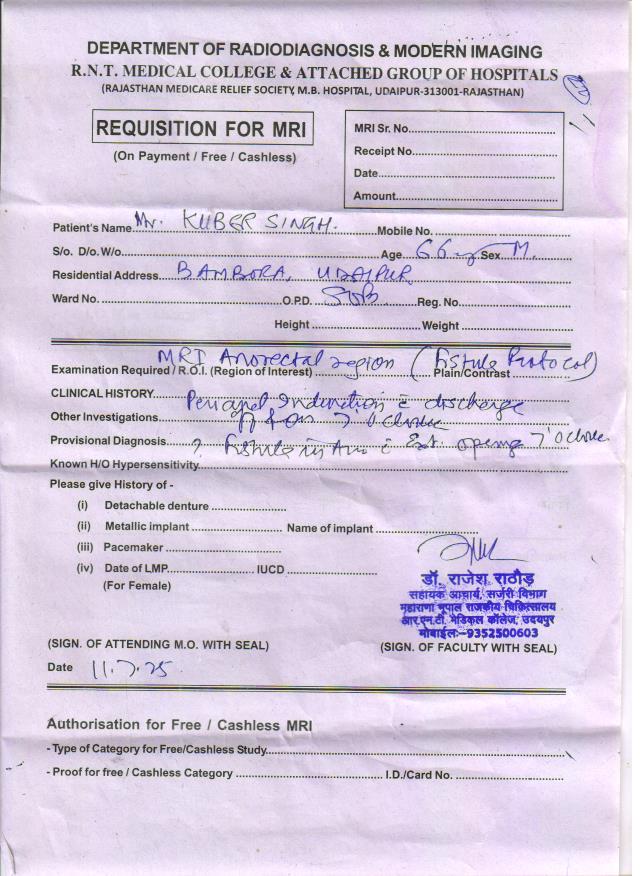 DEPARTMENT OF RADIODIAGNOSIS & MODERN IMAGING
R.N.T. MEDICAL COLLEGE & ATTACHED GROUP OF HOSPITALS
(RAJASTHAN MEDICARE RELIEF SOCIETY, M.B. HOSPITAL, UDAIPUR-313001-RAJASTHAN)
REQUISITION FOR MRI
(On Payment / Free / Cashless)
MRI Sr. No.
Receipt No.
Date
Amount
Patient's Name Mr. KUBER SINGH. Mobile No.
S/o. D/o. W/o Age 66 y Sex M.
Residential Address BAMBORA, UDAIPUR
Ward No. O.P.D. Reg. No.
Height Weight
Examination Required / R.O.I. (Region of Interest) MRI Anorectal region (Fistula Protocol) Plain/Contrast
CLINICAL HISTORY Perianal Induration c̄ discharge
Other Investigations 7 O'clock
Provisional Diagnosis ? Fistula in Ano c̄ Ext. opening 7 'O clock
Known H/O Hypersensitivity
Please give History of -
(i) Detachable denture
(ii) Metallic implant Name of implant
(iii) Pacemaker
(iv) Date of LMP IUCD
(For Female)
डॉ. राजेश राठौड़
सहायक आचार्य, सर्जरी विभाग
महाराणा भूपाल राजकीय चिकित्सालय
आर.एन.टी. मेडिकल कॉलेज, उदयपुर
मोबाईल:-9352500603
(SIGN. OF ATTENDING M.O. WITH SEAL) (SIGN. OF FACULTY WITH SEAL)
Date 11.7.25
Authorisation for Free / Cashless MRI
- Type of Category for Free/Cashless Study
- Proof for free / Cashless Category I.D./Card No.